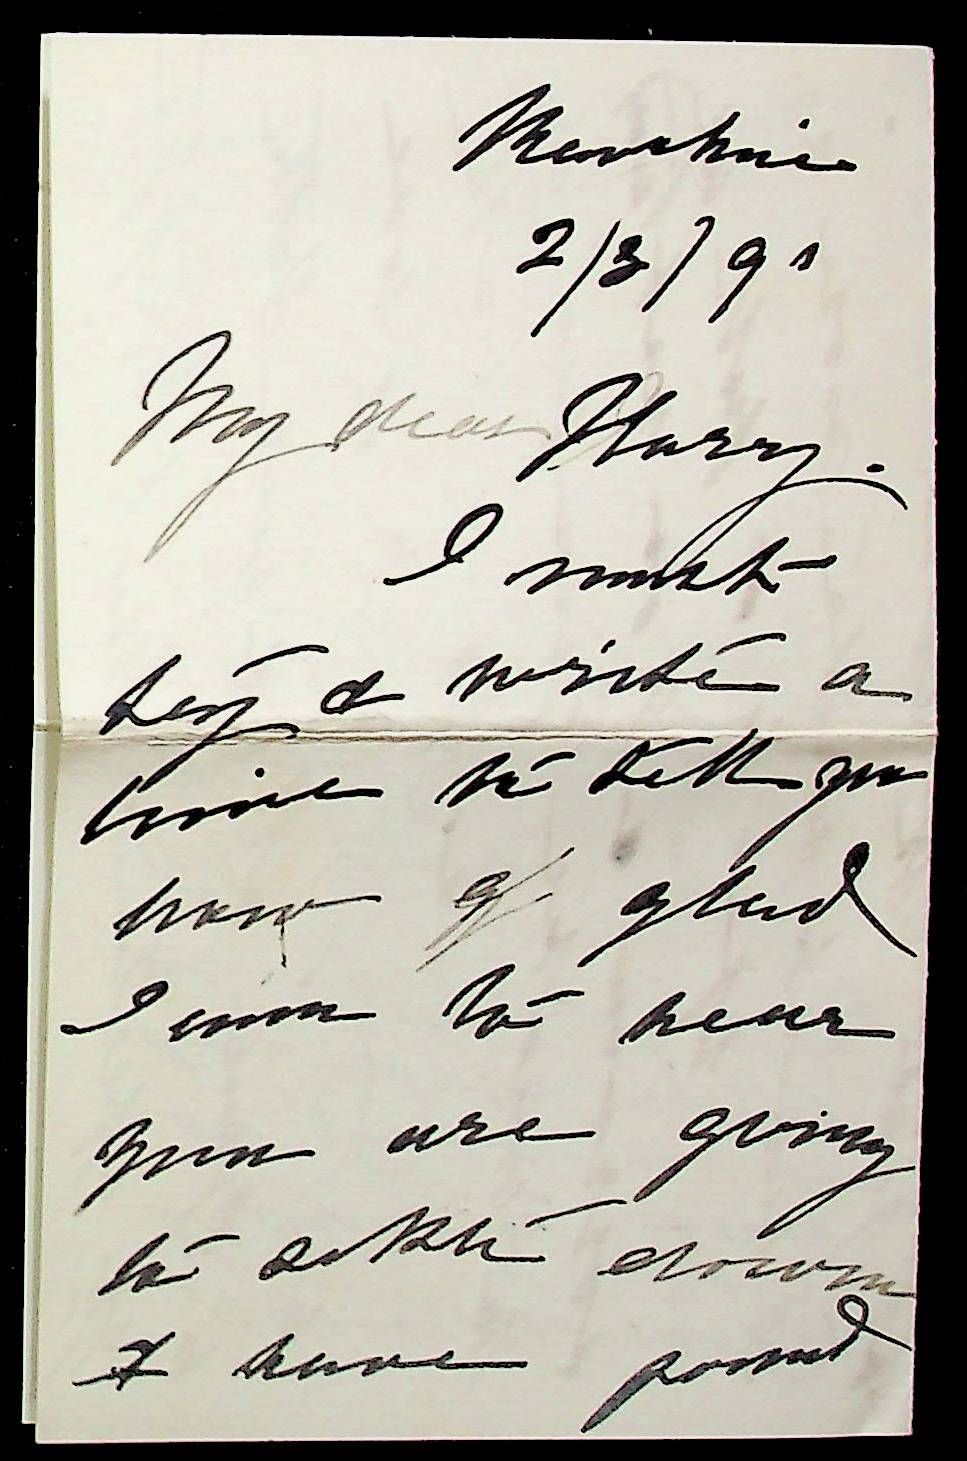 2/3/91
My dear Harry.
I must
try & write a
line to tell you
how gl glad
I am to hear
you are going
to settle down
& have found